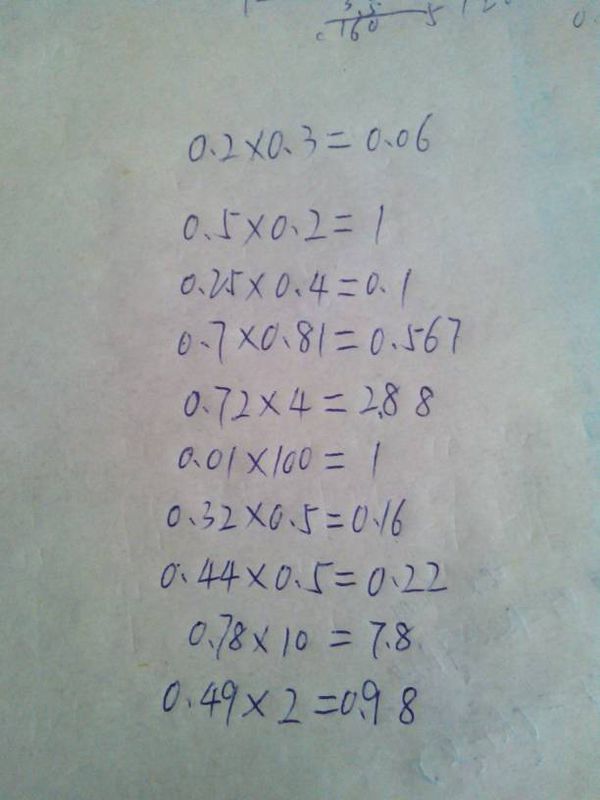 3.5
160 5 120
0.
0.2×0.3=0.06
0.5×0.2=1
0.25×0.4=0.1
0.7×0.81=0.567
0.72×4=2.88
0.01×100=1
0.32×0.5=0.16
0.44×0.5=0.22
0.78×10=7.8
0.49×2=0.98